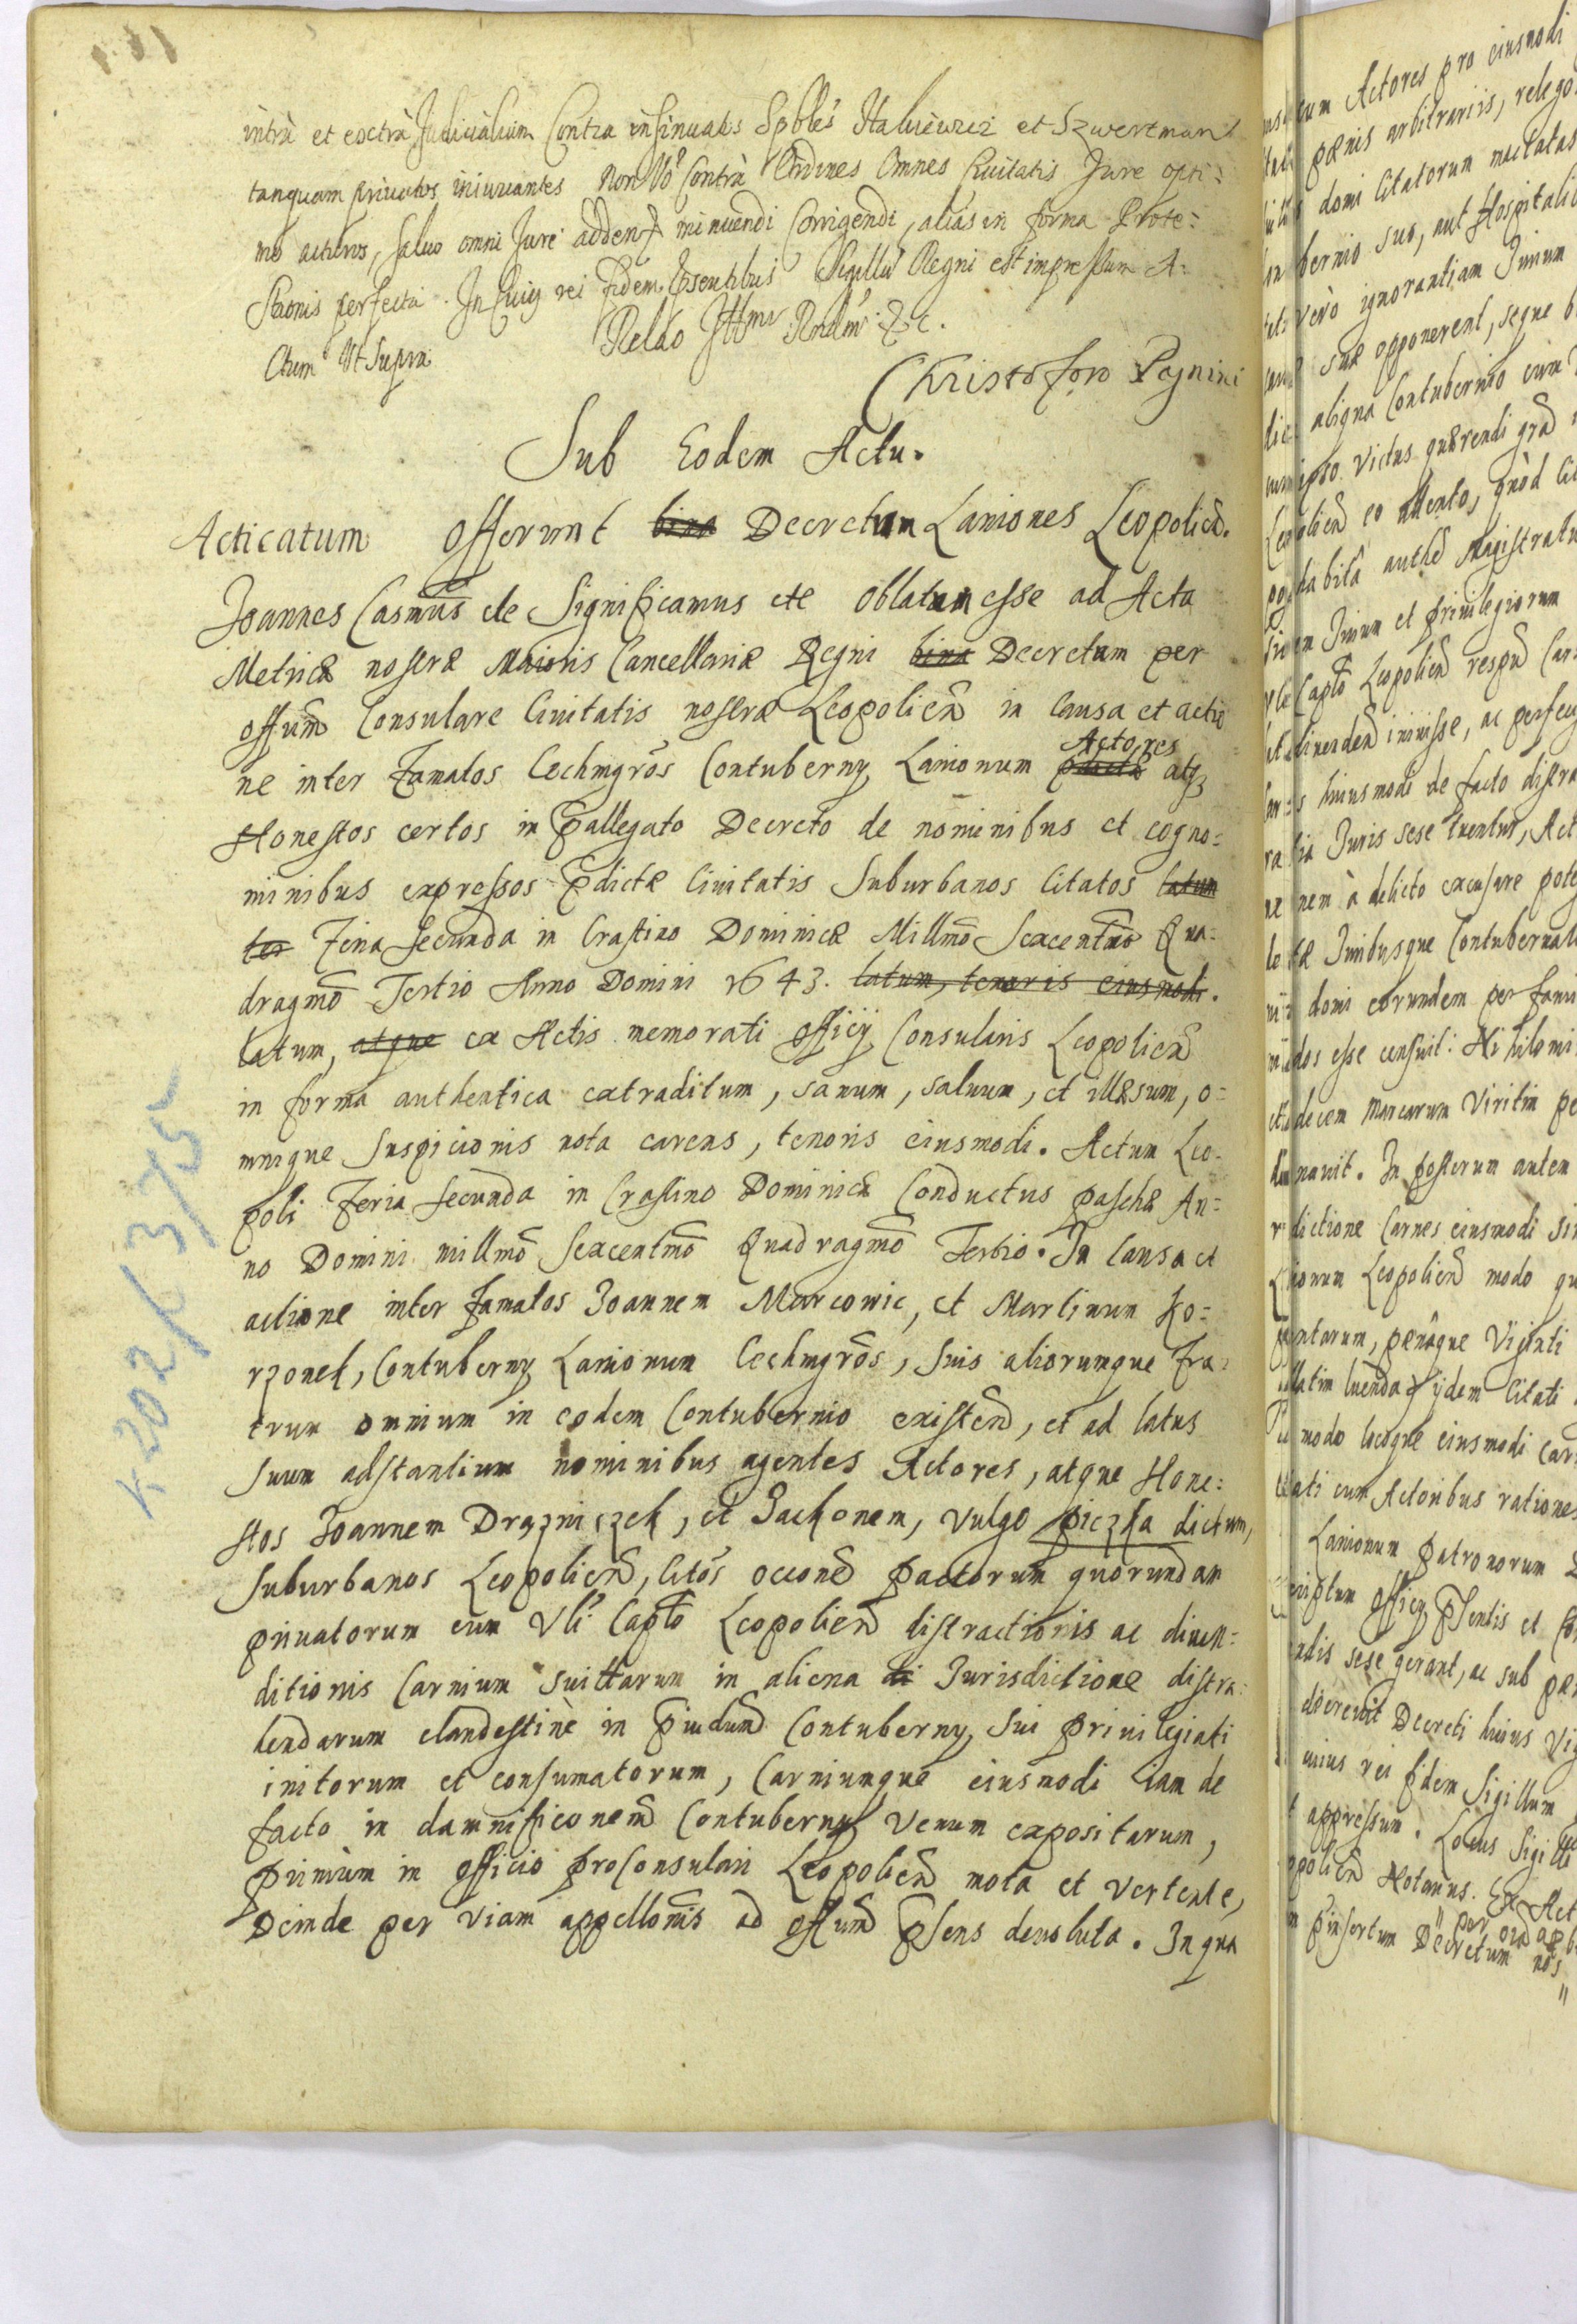 intrà et extrà Judicialium Contra insinuatos Spbles Haluiewicz et Szwertman
tanquam priuatos iniuriantes Non Vo Contrà Ordines Omnes Ciuitatis Jure opti=
mo acturos, saluo omni Jure addendi minuendi Corrigendi, alias in forma Prote=
stãonis perfecta. In Cuius rei fidem psentibus Sigillu Regni est impressum A=
ctum Ut Supra
Relao
Christoforo Pegnini
Sub Eodem Actu.
Acticatum offerunt bina Decretum Laniones Leopolień.
Joannes Casmus etc Significamus etc Oblatum esse ad Acta
Metricæ nostræ Maioris Cancellariæ Regni bina Decretum per
offum Consulare Ciuitatis nostræ Leopolień in Causa et actio
ne inter Famatos Cechmgros Contuberny Lanionum Actores atq3
Honestos certos in pallegato Decreto de nominibus et cogno=
minibus expressos pdictæ Ciuitatis Suburbanos Citatos latum
Feria Secunda in Crastino Dominicæ Millmo Sexcentmo Qua=
dragmo Tertio Anno Domini 1643. latum, tenoris eiusmodi.
latum, atque ex Actis memorati officij Consularis Leopolień
in forma authentica extraditum, sanum, saluum, et illæsum, o=
mnique suspicionis nota carens, tenoris eiusmodi. Actum Leo=
poli Feria secunda in Crastino Dominicæ Conductus paschæ An=
no Domini millmo Sexcentmo Quadragmo Tertio. In Causa et
actione inter Famatos Joannem Marcowic, et Martinum Ko=
rzonek, Contuberny Lanionum Cechmgros, suis aliorumque Fra=
trum omnium in eodem Contubernio existeń, et ad latus
suum adstantium nominibus agentes Actores, atque Hone=
stos Joannem Drazniczek, et Jackonem, vulgo pieczka dictum,
suburbanos Leopolień, Citos occone pactorum quorundam
priuatorum cum Vli Capto Leopolień distractionis ac diuen=
ditionis Carnium Suillarum in aliena di Jurisdictione distra=
hendarum clandestinè in piudum Contuberny sui priuilegiati
initorum et consumatorum, Carniumque eiusmodi iam de
facto in damnificonem Contuberny venum expositarum,
primum in officio proConsulari Leopolień mota et vertente,
Deinde per viam appellonis ad offum psens deuoluta. In qua
K 202/ 375
cum Actores pro eiusmodi
pænis arbitrariis, relego
domi Citatorum mactatas
bernio suo, aut Hospitali
verò ignorantiam Jurium
suæ opponerent, seque
aliqua Contubernio cum
ipso victus quærendi grã
eo attento, quòd Cit
habitâ authe Magistratu
Jurium et priuilegiorum
Capto Leopolień respu Car
diuendeń iniuisse, ac perfec
huiusmodi de facto distra
Juris sese tuentur, Act
nem à delicto excusare pote
Juribusque Contubernal
domi eorundem per fami
dos esse censuit. Nihilomi
decem Marcarum Viritim pe
nauit. In posterum autem
dictione Carnes eiusmodi
Leopolień modo qu
pænâque Viginti
luenda ijdem Citati
modo locoque eiusmodi Car
cum Actoribus ratione
Lanionum patronorum
officij psentis et
sese gerant, ac sub pæ
decreuit Decreti huius vig
cuius rei fidem Sigillum
appressum. Locus Sigilli
Notarius. Ex Act
pinsertum Decretum nos